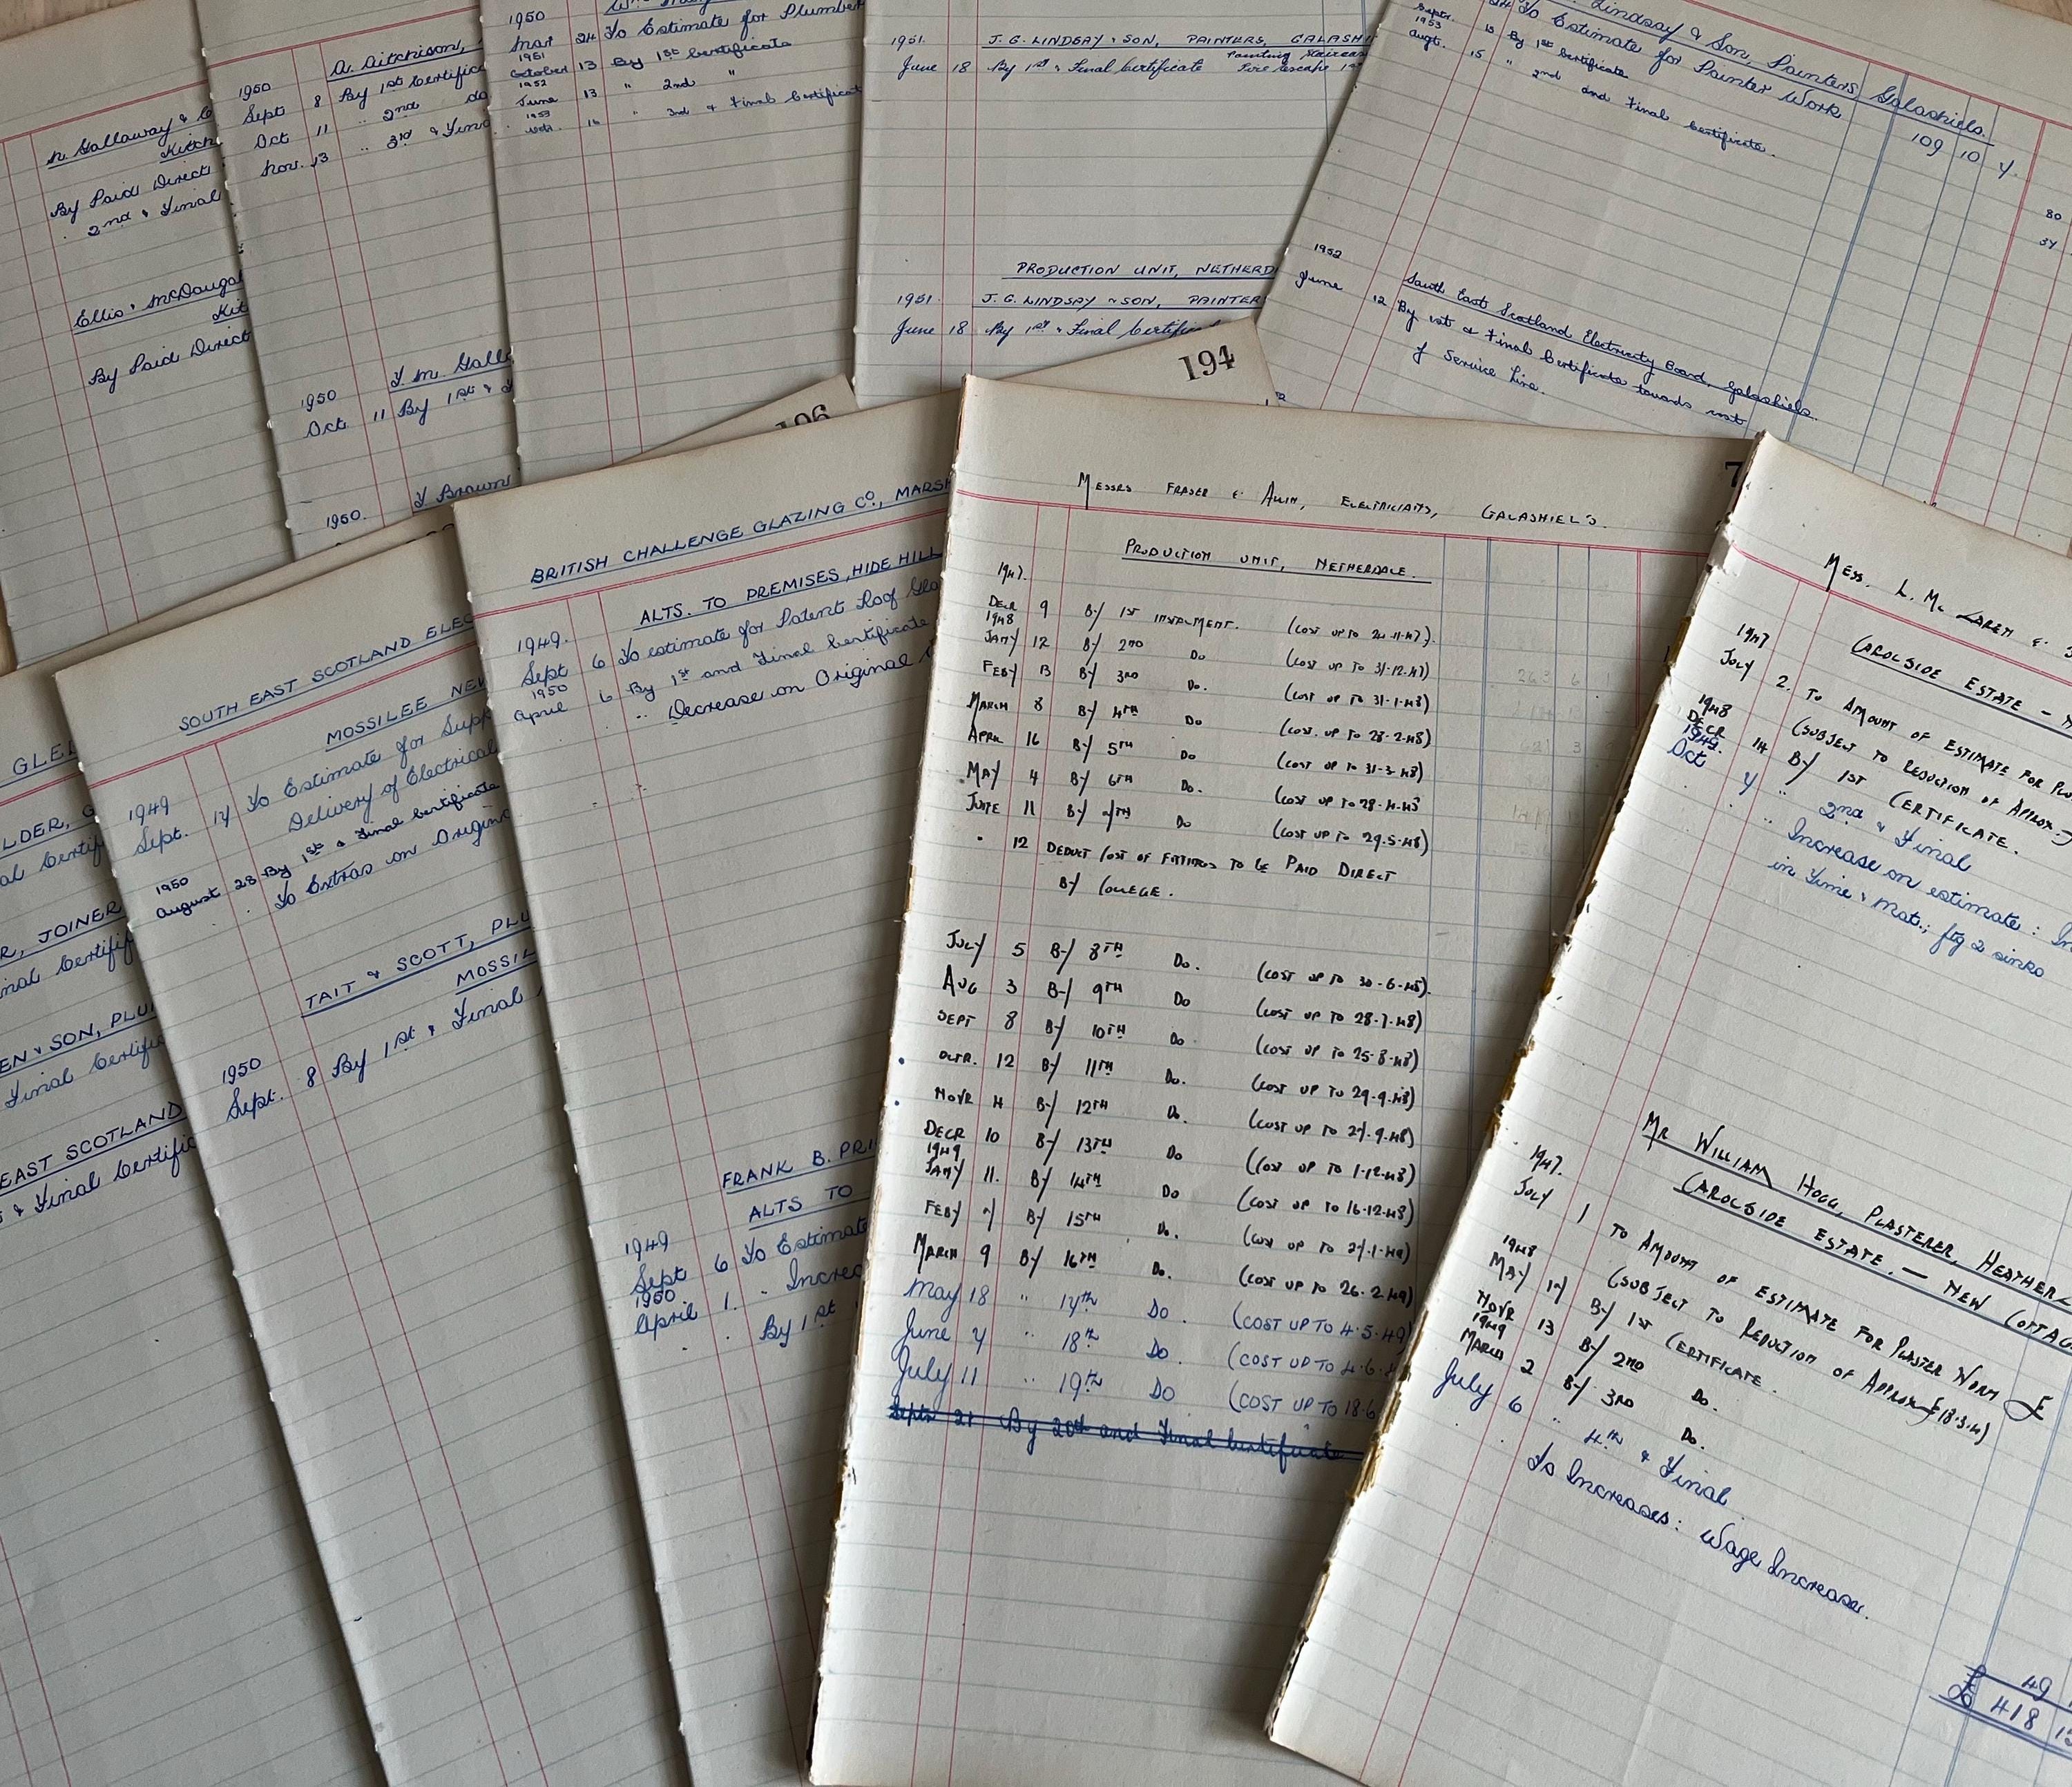 N. Gallaway &
By Paid Direct
2nd & Final
Ellis & McDougal
By Paid Direct
A. Aitchison,
1950
Sept 8 By 1st Certific
Oct 11 " 2nd do
Nov. 13 " 3rd & Fin
1950
Oct 11 By 1st &
1950. J Brown
1950
Mar 24 To Estimate for Plumber
1951
October 13 By 1st Certificate
1952
June 13 " 2nd "
1953
16 " 3rd & Final Certificat
1951. J. G. LINDSAY & SON, PAINTERS, GALASHI
Painting Staircase
June 18 By 1st & Final Certificate Fire Escape
PRODUCTION UNIT, NETHERD
1951. J. G. LINDSAY & SON, PAINTER
June 18 By 1st & Final Certific
Lindsay & Son, Painters, Galashiels.
24 To Estimate for Painter Work 109 10 4
Sept. 1953 15 By 1st Certificate 80
Augt. 15 " 2nd and Final Certificate. 34
1952
South East Scotland Electricity Board, Galashiels.
June 12 By 1st & Final Certificate towards cost
of Service Line.
106
194
GLE
LDER, G
al Certif
R, JOINER
nal Certif
EN & SON, PLU
Final Certific
EAST SCOTLAND
& Final Certific
SOUTH EAST SCOTLAND ELEC
MOSSILEE NEW
1949
Sept. 14 To Estimate for Supp
Delivery of Electrical
1950
August 28 By 1st & Final Certificate
" To Extras on Origin
TAIT & SCOTT, PLU
MOSSIL
1950
Sept. 8 By 1st & Final
BRITISH CHALLENGE GLAZING CO, MARSH
ALTS. TO PREMISES, HIDE HILL
1949.
Sept 6 To estimate for Patent Roof Gla
1950
April 6 By 1st and Final Certificate
" " Decrease on Original
FRANK B. PRI
ALTS TO
1949
Sept 6 To Estimate
1950
April 1. " Increa
" By 1st
MESSRS FRASER & ALLIN, ELECTRICIANS, GALASHIEL'S.
7
PRODUCTION UNIT, NETHERDALE.
1947.
DECR 9 BY 1ST INSTALMENT. (COST UP TO 24.11.47).
1948
JANY 12 BY 2ND DO (COST UP TO 31-12.47)
FEBY 13 BY 3RD DO. (COST UP TO 31-1-48)
MARCH 8 BY 4TH DO (COST. UP TO 28-2-48)
APRIL 16 BY 5TH DO (COST UP TO 31-3-48)
MAY 4 BY 6TH DO. (COST UP TO 28-4-48
JUNE 11 BY 7TH DO (COST UP TO 29.5.48)
" 12 DEDUCT COST OF FITTINGS TO BE PAID DIRECT
BY COLLEGE.
JULY 5 BY 8TH DO. (COST UP TO 30-6-48).
AUG 3 BY 9TH DO (COST UP TO 28-7-48)
SEPT 8 BY 10TH DO (COST UP TO 25-8-48)
OCTR. 12 BY 11TH DO. (COST UP TO 29-9-48)
NOVR 4 BY 12TH DO. (COST UP TO 27.9.48)
DECR 10 BY 13TH DO (COST UP TO 1-12-48)
1949
JANY 11. BY 14TH DO (COST UP TO 16-12-48)
FEBY 7 BY 15TH DO. (COST UP TO 27.1.49)
MARCH 9 BY 16TH DO. (COST UP TO 26.2.49)
May 18 " 17th DO. (COST UP TO 4.5.49)
June 7 " 18th DO. (COST UP TO 4.6.4
July 11 " 19th DO (COST UP TO 18.6
Septr 21 By 20th and Final Certificate
MESS. L. MC LAREN &
CAROLSIDE ESTATE -
1947
JULY 2. TO AMOUNT OF ESTIMATE FOR PLU
(SUBJECT TO REDUCTION OF APPROX.
1948
DECR 14 BY 1ST CERTIFICATE.
1949.
Oct 7 " 2nd & Final
" Increase on estimate: In
in Time & Mat.; ftg 2 sinks
MR WILLIAM HOGG, PLASTERER, HEATHER
CAROLSIDE ESTATE. — NEW COTTAG
1947.
JULY 1 TO AMOUNT OF ESTIMATE FOR PLASTER WORK £
(SUBJECT TO REDUCTION OF APPROX £18.3.4)
1948
MAY 17 BY 1ST CERTIFICATE.
NOVR 13 BY 2ND DO.
1949
MARCH 2 BY 3RD DO.
July 6 " 4th & Final
" To Increases: Wage Increase.
49
£ 418 15